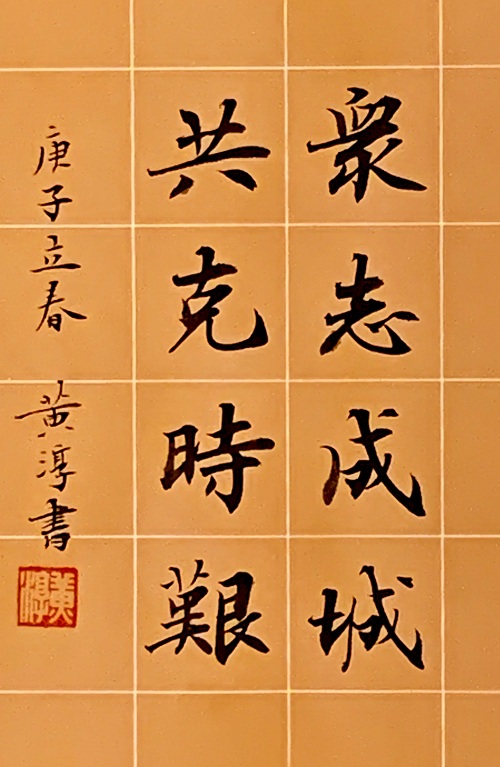 衆志成城
共克時艱
庚子立春 黄淳書
黄淳